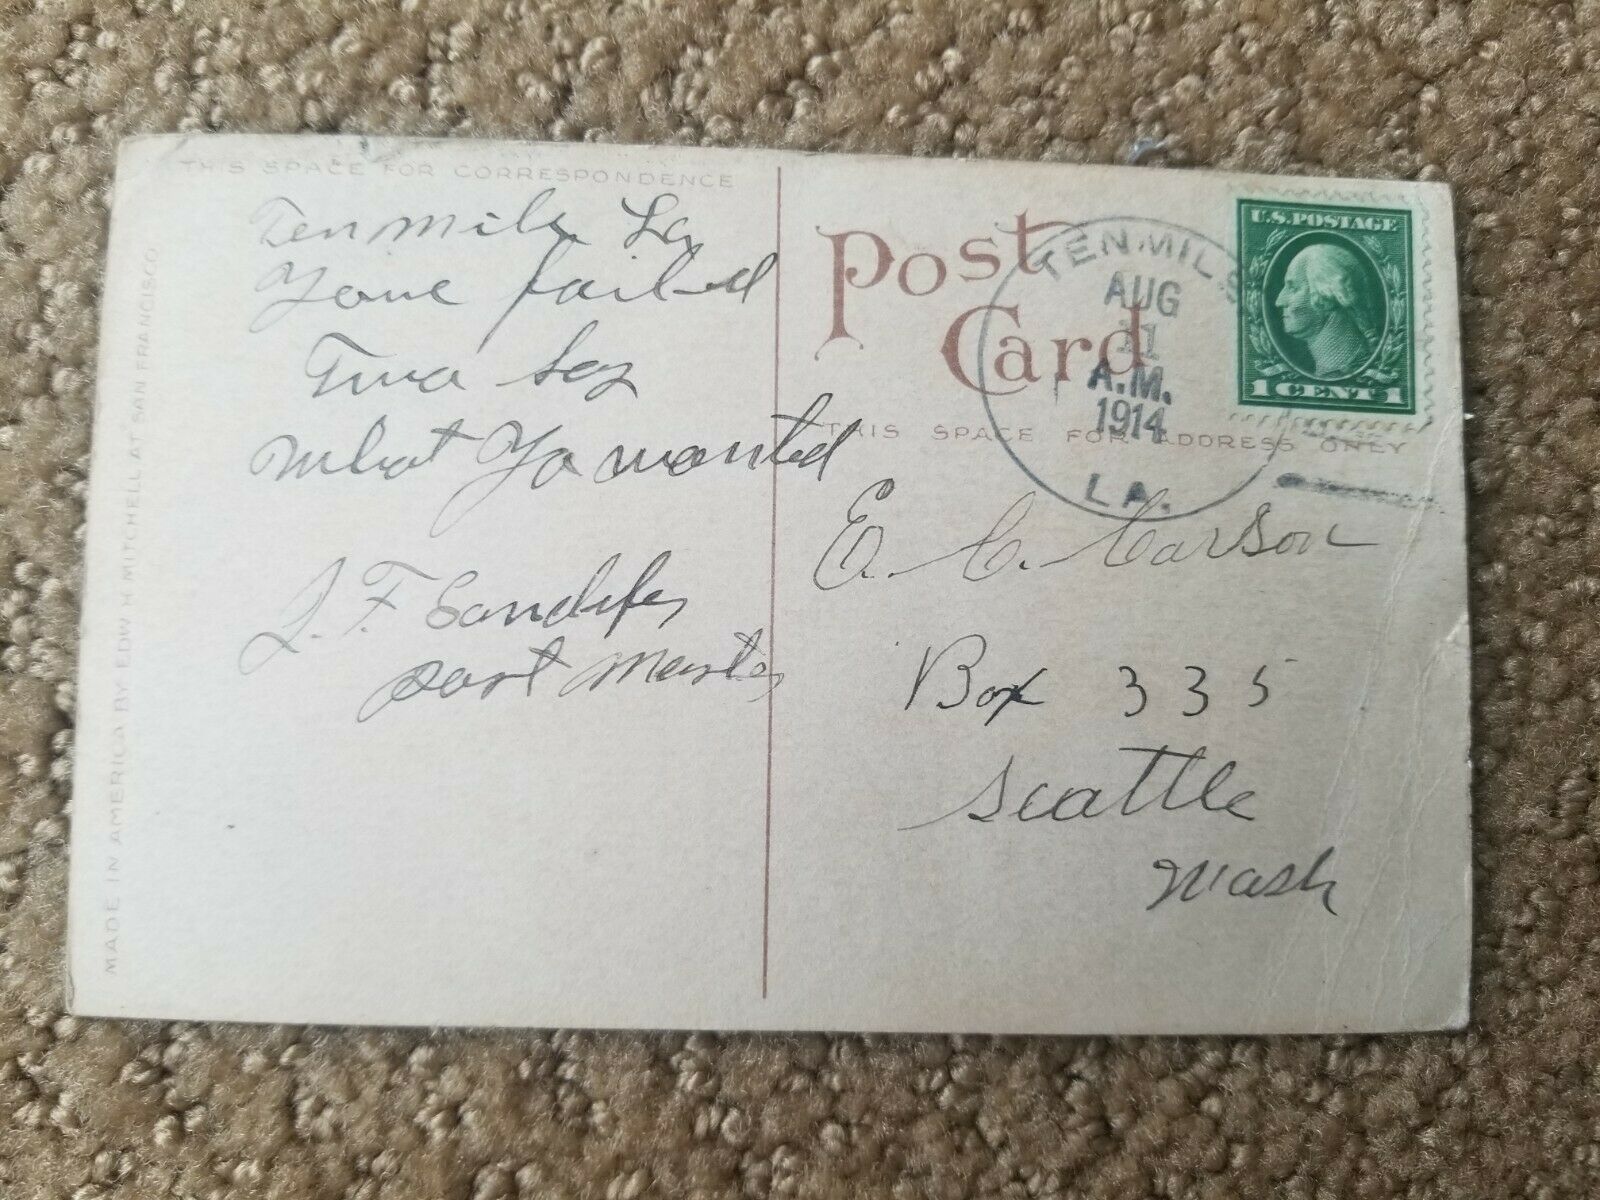 THIS SPACE FOR CORRESPONDENCE
Tenmile La
failed
say
what Yo wanted
F. Sandifer
Post Master
MADE IN AMERICA BY EDW. H. MITCHELL AT SAN FRANCISCO
Post Card
TENMILE
AUG
11
A.M.
1914
LA.
U.S. POSTAGE
1 CENT 1
THIS SPACE FOR ADDRESS ONLY
E. C. Carson
Box 335
Seattle
Wash